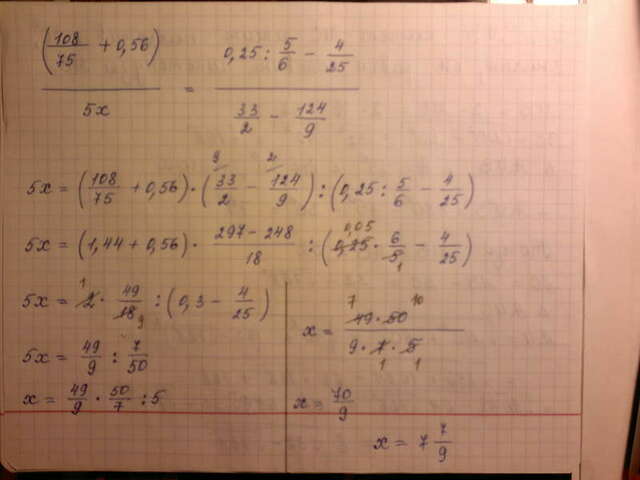 (108/75 + 0,56) / 5x = (0,25 : 5/6 - 4/25) / (33/2 - 124/9)
5x = (108/75 + 0,56) · (33/2 - 124/9) : (0,25 : 5/6 - 4/25)
5x = (1,44 + 0,56) · (297 - 248)/18 : (0,25 · 6/5 - 4/25)
5x = 2 · 49/18 : (0,3 - 4/25)
5x = 49/9 : 7/50
x = 49/9 · 50/7 : 5
x = (49 · 50)/(9 · 7 · 5)
x = 70/9
x = 7 7/9